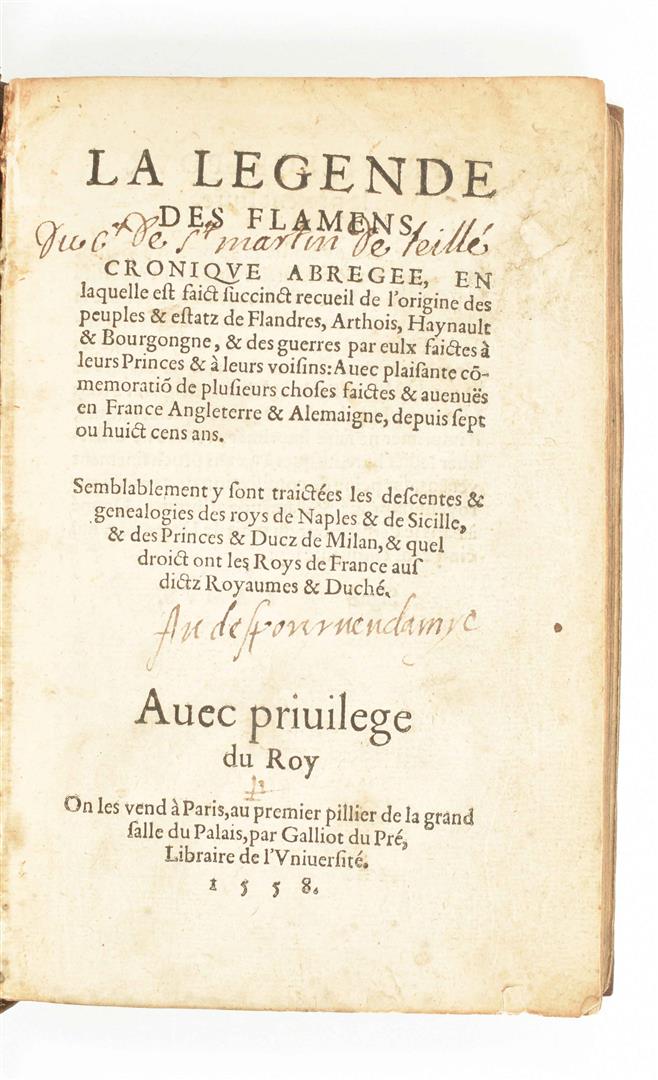 LA LEGENDE
DES FLAMENS,
Du Ct. De St. martin De teillé
CRONIQVE ABREGEE, EN
laquelle eſt faict ſuccinct recueil de l'origine des
peuples & eſtatz de Flandres, Arthois, Haynault
& Bourgongne, & des guerres par eulx faictes à
leurs Princes & à leurs voiſins: Auec plaiſante cõ-
memoratiõ de pluſieurs choſes faictes & auenuës
en France Angleterre & Alemaigne, depuis ſept
ou huict cens ans.
Semblablement y ſont traictées les deſcentes &
genealogies des roys de Naples & de Sicille,
& des Princes & Ducz de Milan, & quel
droict ont les Roys de France auſ
dictz Royaumes & Duché.
Auec priuilege
du Roy
On les vend à Paris, au premier pillier de la grand
ſalle du Palais, par Galliot du Pré,
Libraire de l'Vniuerſité.
1558.